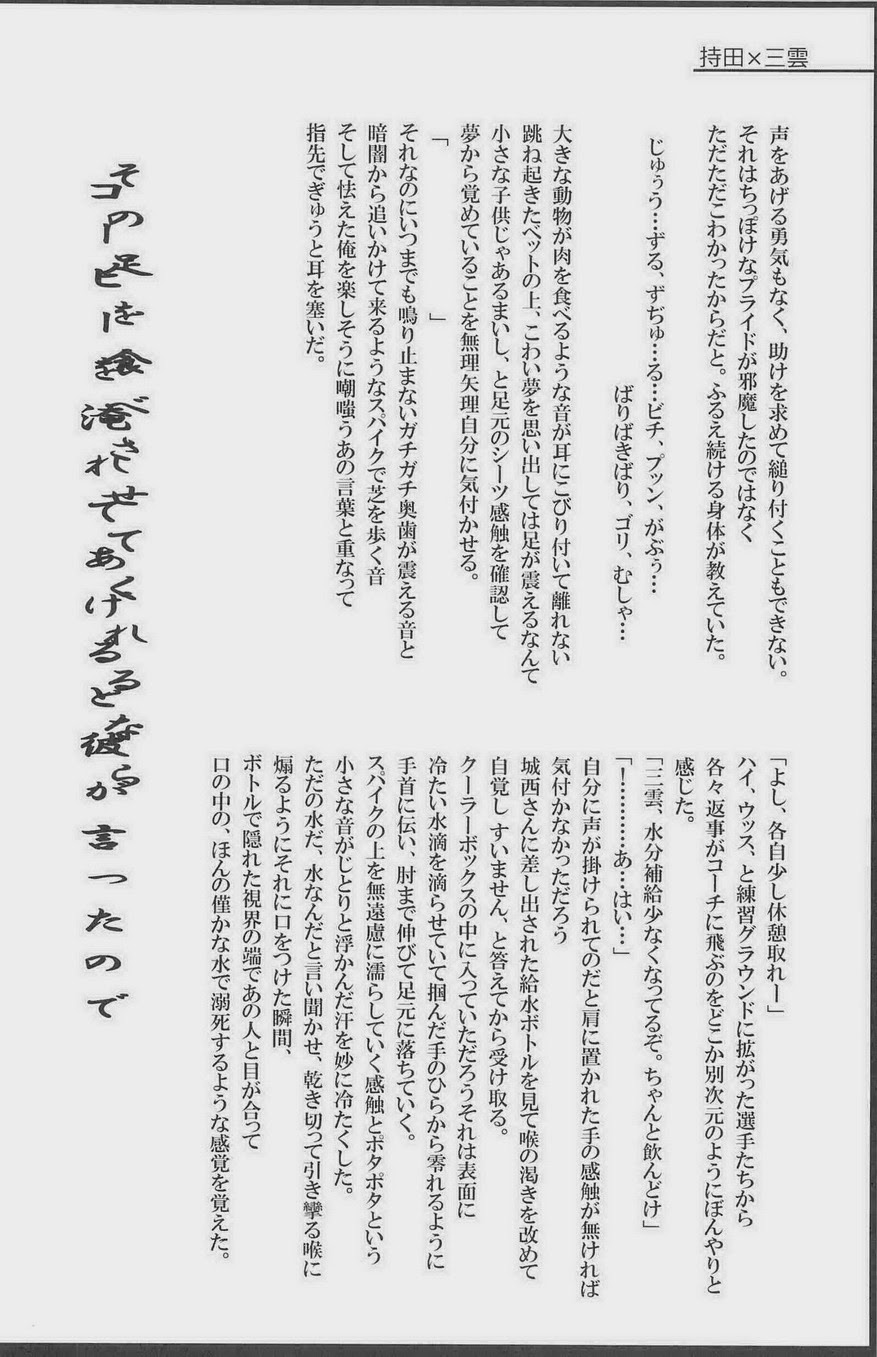 持田×三雲
声をあげる勇気もなく、助けを求めて縋り付くこともできない。
それはちっぽけなプライドが邪魔したのではなく
ただただこわかったからだと。ふるえ続ける身体が教えていた。
じゅぅう…ずる、ずぢゅ…る…ビチ、プッン、がぶぅ…
ばりばきばり、ゴリ、むしゃ…
大きな動物が肉を食べるような音が耳にこびり付いて離れない
跳ね起きたベットの上、こわい夢を思い出しては足が震えるなんて
小さな子供じゃあるまいし、と足元のシーツ感触を確認して
夢から覚めていることを無理矢理自分に気付かせる。
「　　　　　　　」
それなのにいつまでも鳴り止まないガチガチ奥歯が震える音と
暗闇から追いかけて来るようなスパイクで芝を歩く音
そして怯えた俺を楽しそうに嘲嗤うあの言葉と重なって
指先でぎゅうと耳を塞いだ。
「よし、各自少し休憩取れー」
ハイ、ウッス、と練習グラウンドに拡がった選手たちから
各々返事がコーチに飛ぶのをどこか別次元のようにぼんやりと
感じた。
「三雲、水分補給少なくなってるぞ。ちゃんと飲んどけ」
「！…………あ…はい…」
自分に声が掛けられてのだと肩に置かれた手の感触が無ければ
気付かなかっただろう
城西さんに差し出された給水ボトルを見て喉の渇きを改めて
自覚し すいません、と答えてから受け取る。
クーラーボックスの中に入っていただろうそれは表面に
冷たい水滴を滴らせていて掴んだ手のひらから零れるように
手首に伝い、肘まで伸びて足元に落ちていく。
スパイクの上を無遠慮に濡らしていく感触とポタポタという
小さな音がじとりと浮かんだ汗を妙に冷たくした。
ただの水だ、水なんだと言い聞かせ、乾き切って引き攣る喉に
煽るようにそれに口をつけた瞬間、
ボトルで隠れた視界の端であの人と目が合って
口の中の、ほんの僅かな水で溺死するような感覚を覚えた。
その足を食べさせてくれるなら
コーヒーを淹れてあげると彼が言ったので